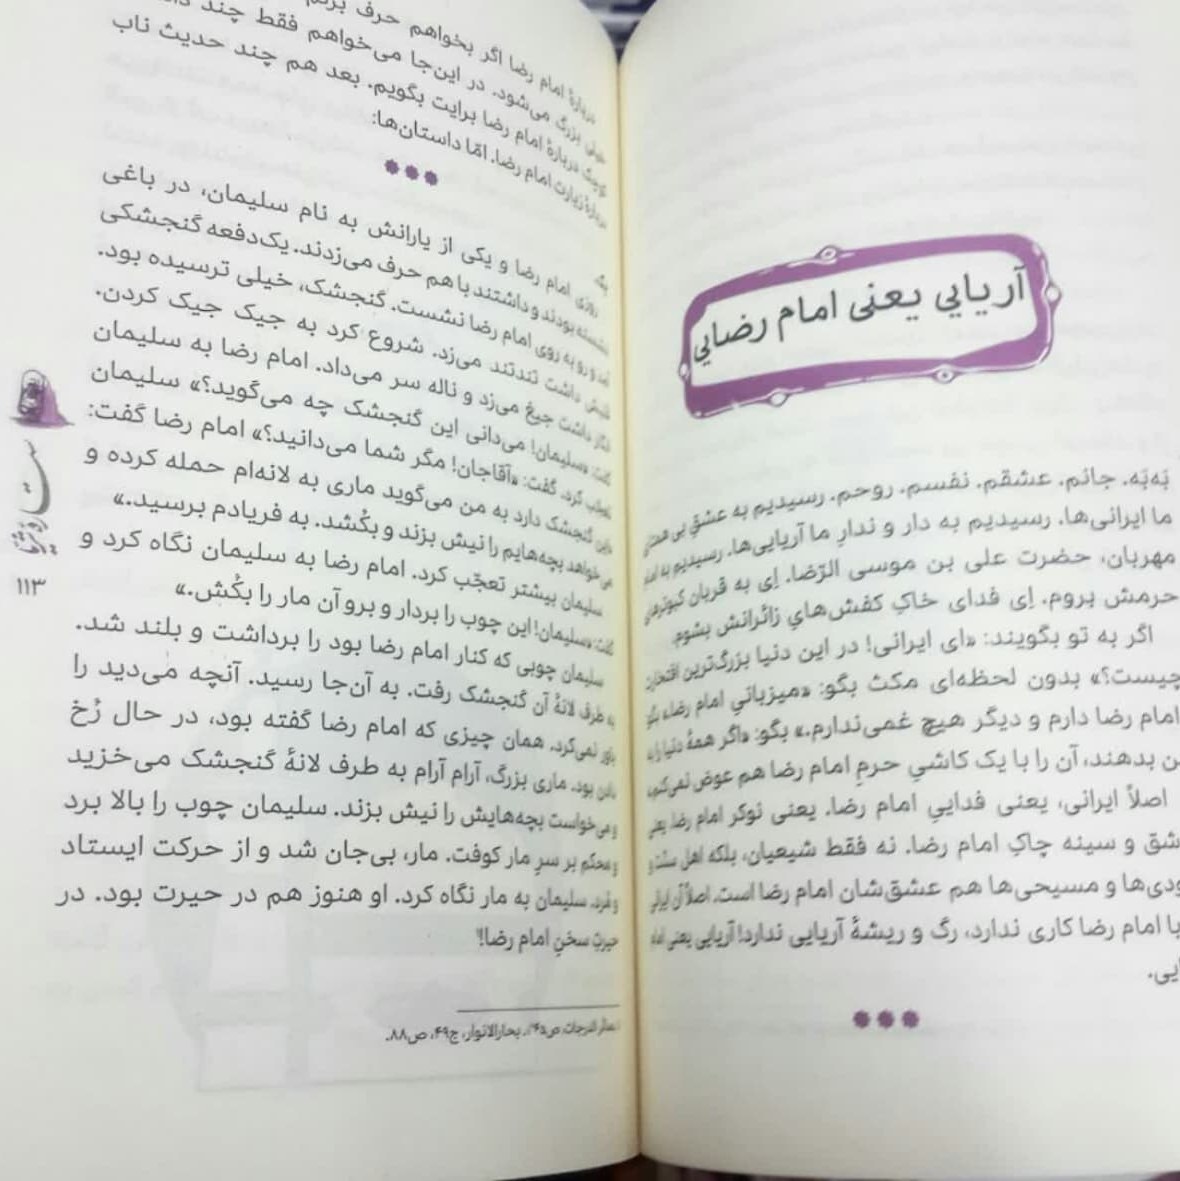 آریایی یعنی امام رضایی
بَه‌بَه. جانم. عشقم. نفسم. روحم. رسیدیم به عشقِ بی همتای
ما ایرانی‌ها. رسیدیم به دار و ندارِ ما آریایی‌ها. رسیدیم به امام
مهربان، حضرت علی بن موسی الرّضا. اِی به قربان کبوترهای
حرمش بروم. اِی فدای خاکِ کفش‌هایِ زائرانش بشوم.
اگر به تو بگویند: «ای ایرانی! در این دنیا بزرگ‌ترین افتخارت
چیست؟» بدون لحظه‌ای مکث بگو: «میزبانیِ امام رضا» بگو:
امام رضا دارم و دیگر هیچ غمی‌ندارم.» بگو: «اگر همهٔ دنیا را به
بدهند، آن را با یک کاشیِ حرمِ امام رضا هم عوض نمی‌کنم.»
اصلاً ایرانی، یعنی فداییِ امام رضا. یعنی نوکر امام رضا. یعنی
و سینه چاکِ امام رضا. نه فقط شیعیان، بلکه اهل سنّت و
و مسیحی‌ها هم عشق‌شان امام رضا است. اصلاً آن ایرانی
با امام رضا کاری ندارد، رگ و ریشهٔ آریایی ندارد! آریایی یعنی امام
دربارهٔ امام رضا اگر بخواهم حرف بزنم
خیلی بزرگ می‌شود. در این‌جا می‌خواهم فقط چند
کوچک دربارهٔ امام رضا برایت بگویم. بعد هم چند حدیث ناب
دربارهٔ زیارت امام رضا. امّا داستان‌ها:
یک
روزی امام رضا و یکی از یارانش به نام سلیمان، در باغی
نشسته بودند و داشتند با هم حرف می‌زدند. یک‌دفعه گنجشکی
آمد و رو به روی امام رضا نشست. گنجشک، خیلی ترسیده بود.
قلبش داشت تندتند می‌زد. شروع کرد به جیک جیک کردن.
انگار داشت جیغ می‌زد و ناله سر می‌داد. امام رضا به سلیمان
گفت: «سلیمان! می‌دانی این گنجشک چه می‌گوید؟» سلیمان
تعجّب کرد. گفت: «آقاجان! مگر شما می‌دانید؟» امام رضا گفت:
«این گنجشک دارد به من می‌گوید ماری به لانه‌ام حمله کرده و
می‌خواهد بچه‌هایم را نیش بزند و بکُشد. به فریادم برسید.»
سلیمان بیشتر تعجّب کرد. امام رضا به سلیمان نگاه کرد و
گفت: «سلیمان! این چوب را بردار و برو آن مار را بکُش.»
سلیمان چوبی که کنار امام رضا بود را برداشت و بلند شد.
به طرف لانهٔ آن گنجشک رفت. به آن‌جا رسید. آنچه می‌دید را
باور نمی‌کرد. همان چیزی که امام رضا گفته بود، در حال رُخ
دادن بود. ماری بزرگ، آرام آرام به طرف لانهٔ گنجشک می‌خزید
و می‌خواست بچه‌هایش را نیش بزند. سلیمان چوب را بالا برد
و محکم بر سرِ مار کوفت. مار، بی‌جان شد و از حرکت ایستاد
و مُرد. سلیمان به مار نگاه کرد. او هنوز هم در حیرت بود. در
حیرتِ سخنِ امام رضا!
بحارالانوار، ج۴۹، ص۸۸.
۱۱۳